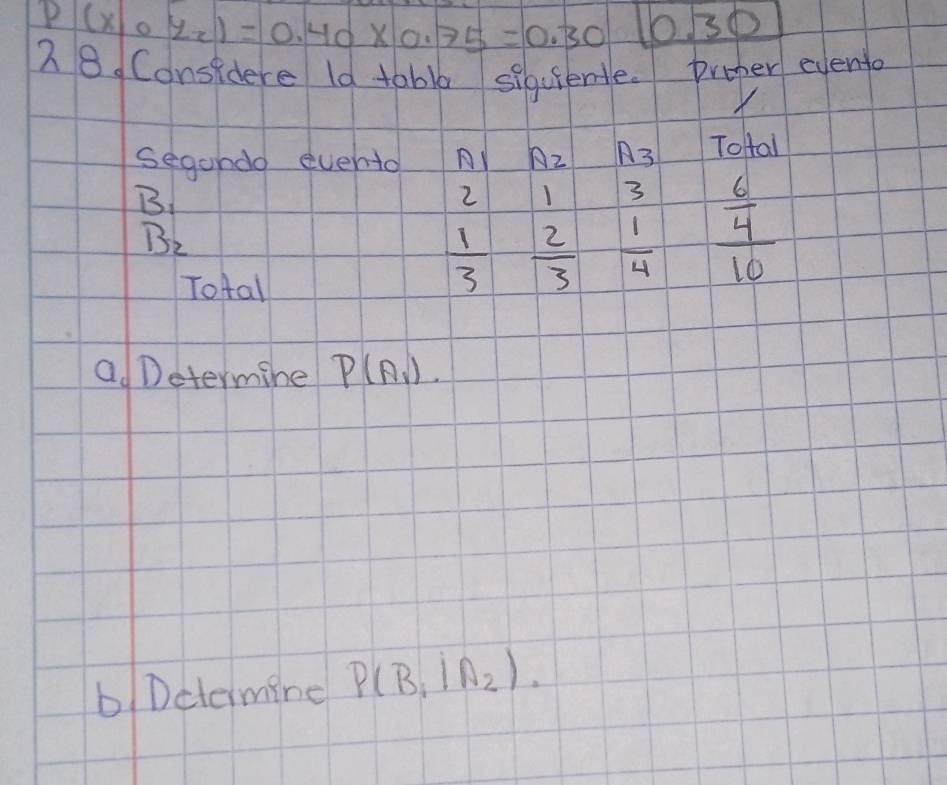 P(x 0 y2) = 0.40 x 0.75 = 0.30 0.30
28. Considere la tabla siguiente. Primer evento
Segundo evento A1 A2 A3 Total
B1 2 1 3 6
B2 1 2 1 4
Total 3 3 4 10
a. Determine P(A1).
b. Determine P(B1|A2).